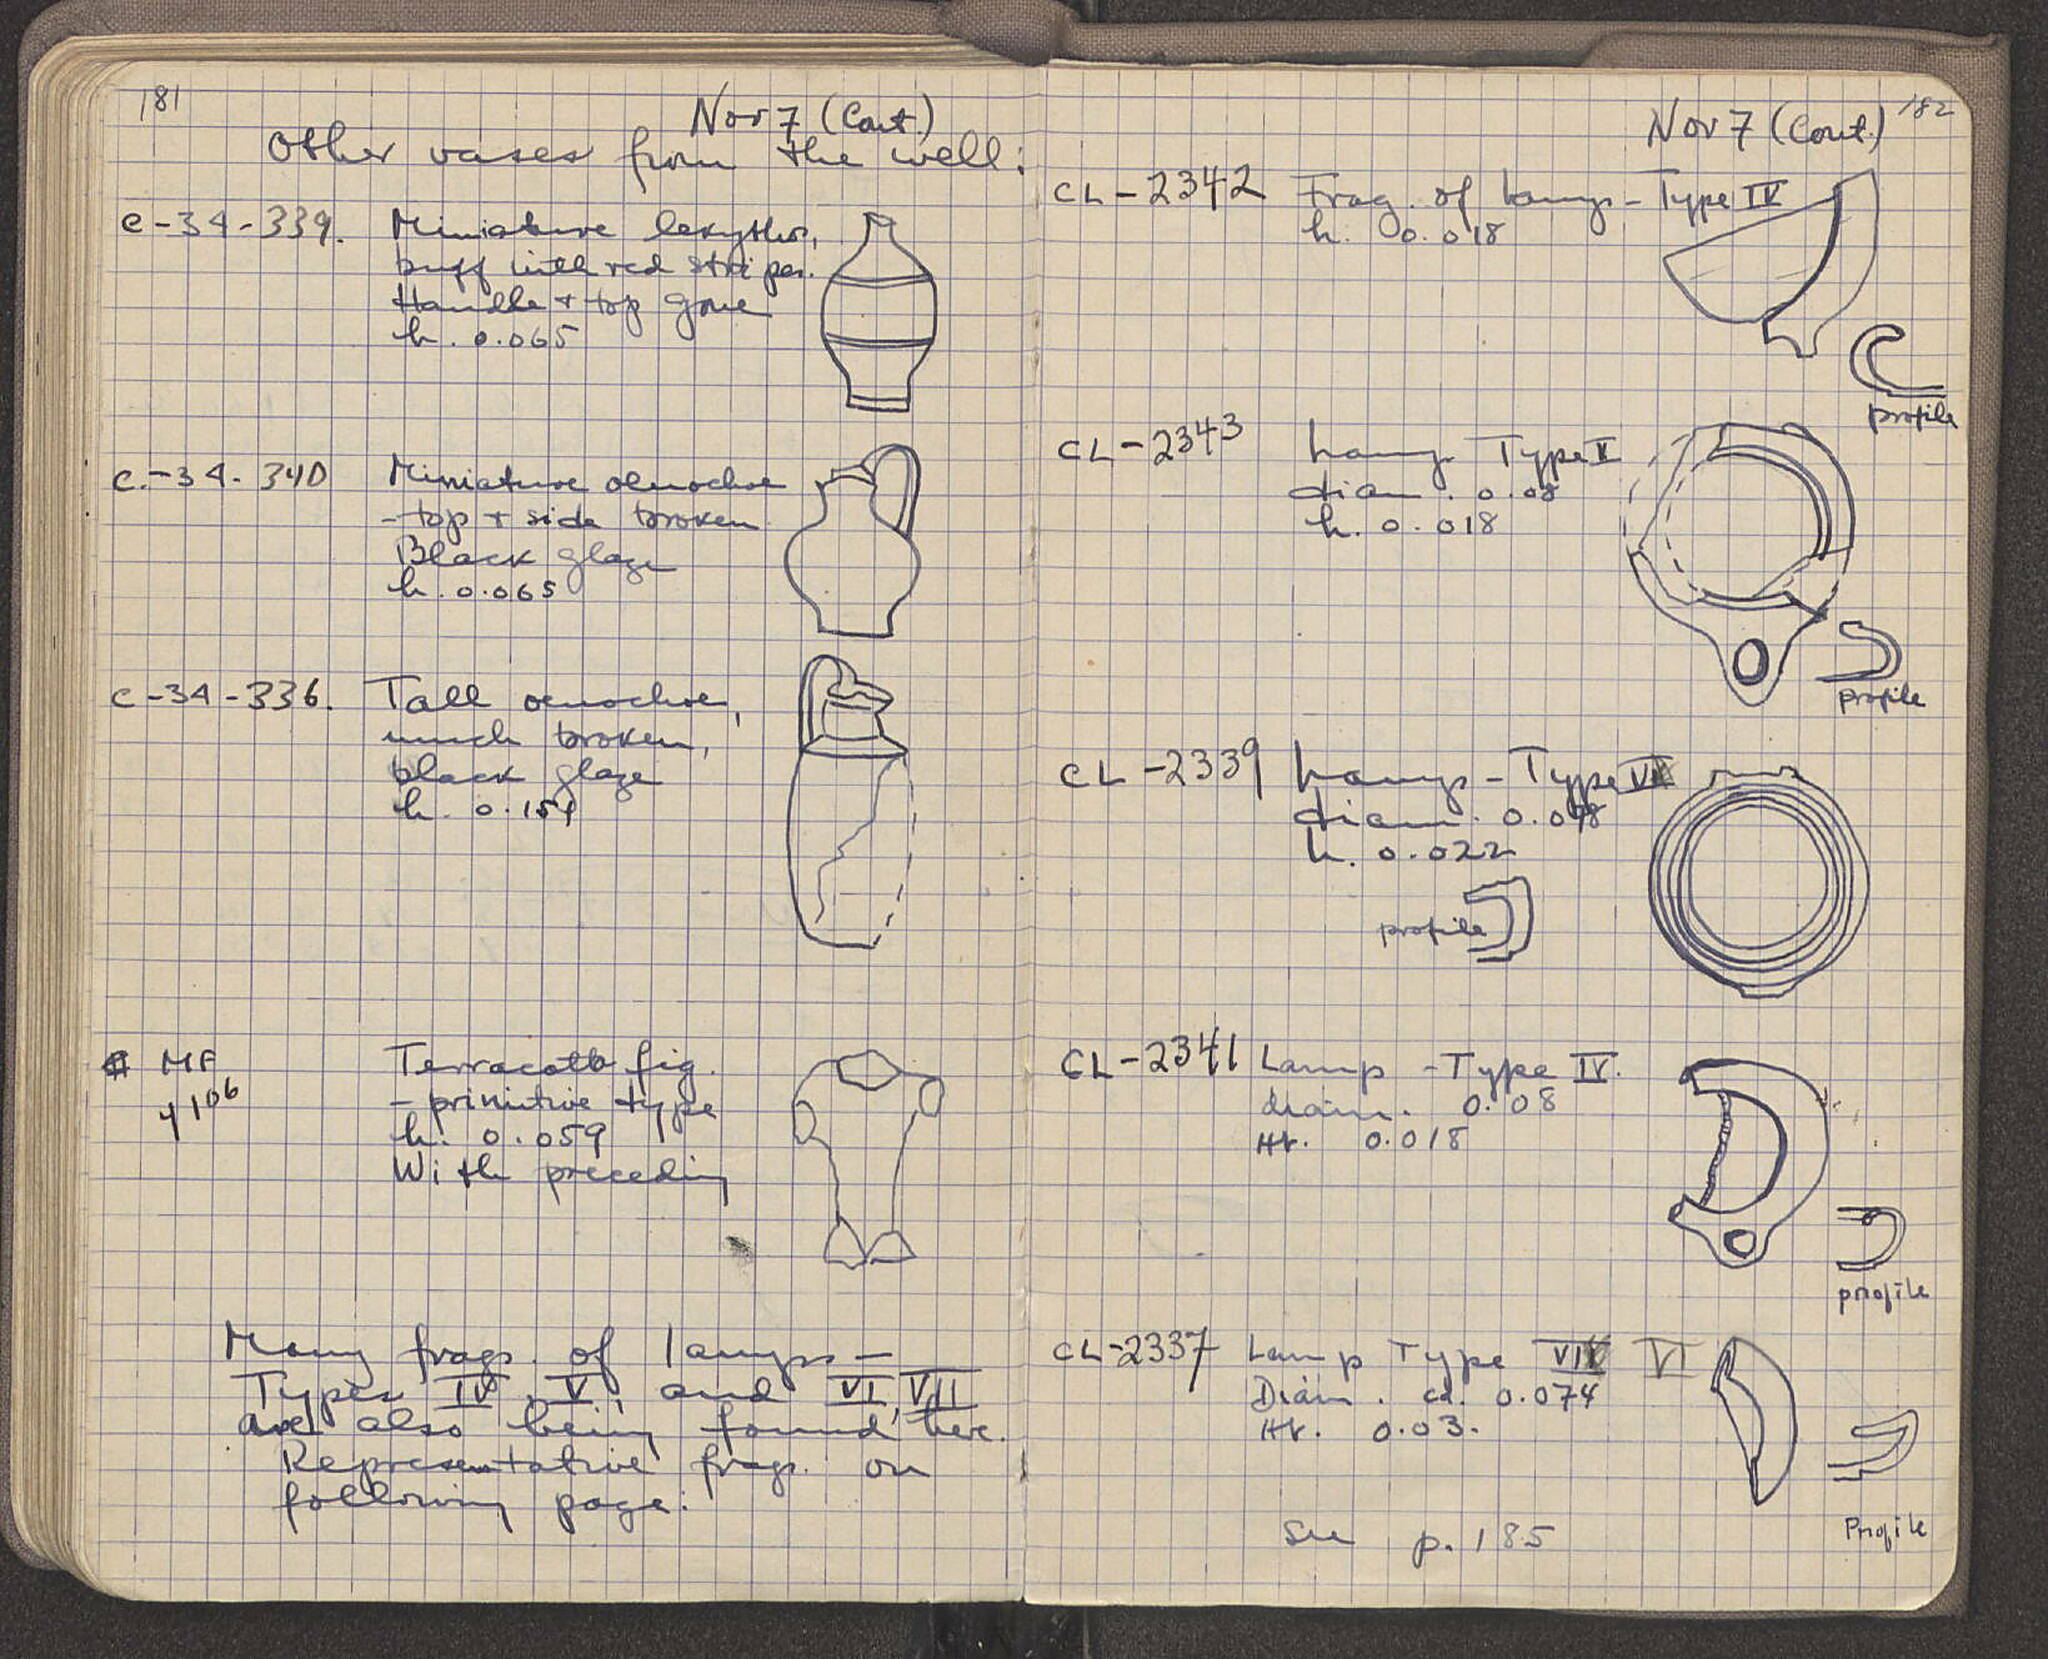 181
Nov 7 (Cont.)
Other vases from the well:
C-34-339. Miniature lekythos,
buff with red stripes.
Handle + top gone
h. 0.065
C.-34-340 Miniature oenochoe
- top + side broken
Black glaze
h. 0.065
C-34-336. Tall oenochoe,
much broken,
black glaze
h. 0.154
MF Terracotta fig.
4106 - primitive type
h. 0.059
With preceding
Many frags. of lamps -
Types IV, V, and VI, VII
are also being found here.
Representative frags. on
following page:
182
Nov 7 (Cont.)
CL-2342 Frag. of lamp - Type IV
h. 0.018
profile
CL-2343 Lamp Type V
diam. 0.08
h. 0.018
profile
CL-2339 Lamp - Type VI
diam. 0.078
h. 0.022
profile
CL-2341 Lamp - Type IV.
diam. 0.08
Ht. 0.018
profile
CL-2337 Lamp Type VII VI
Diam. ca. 0.074
Ht. 0.03.
Profile
See p. 185